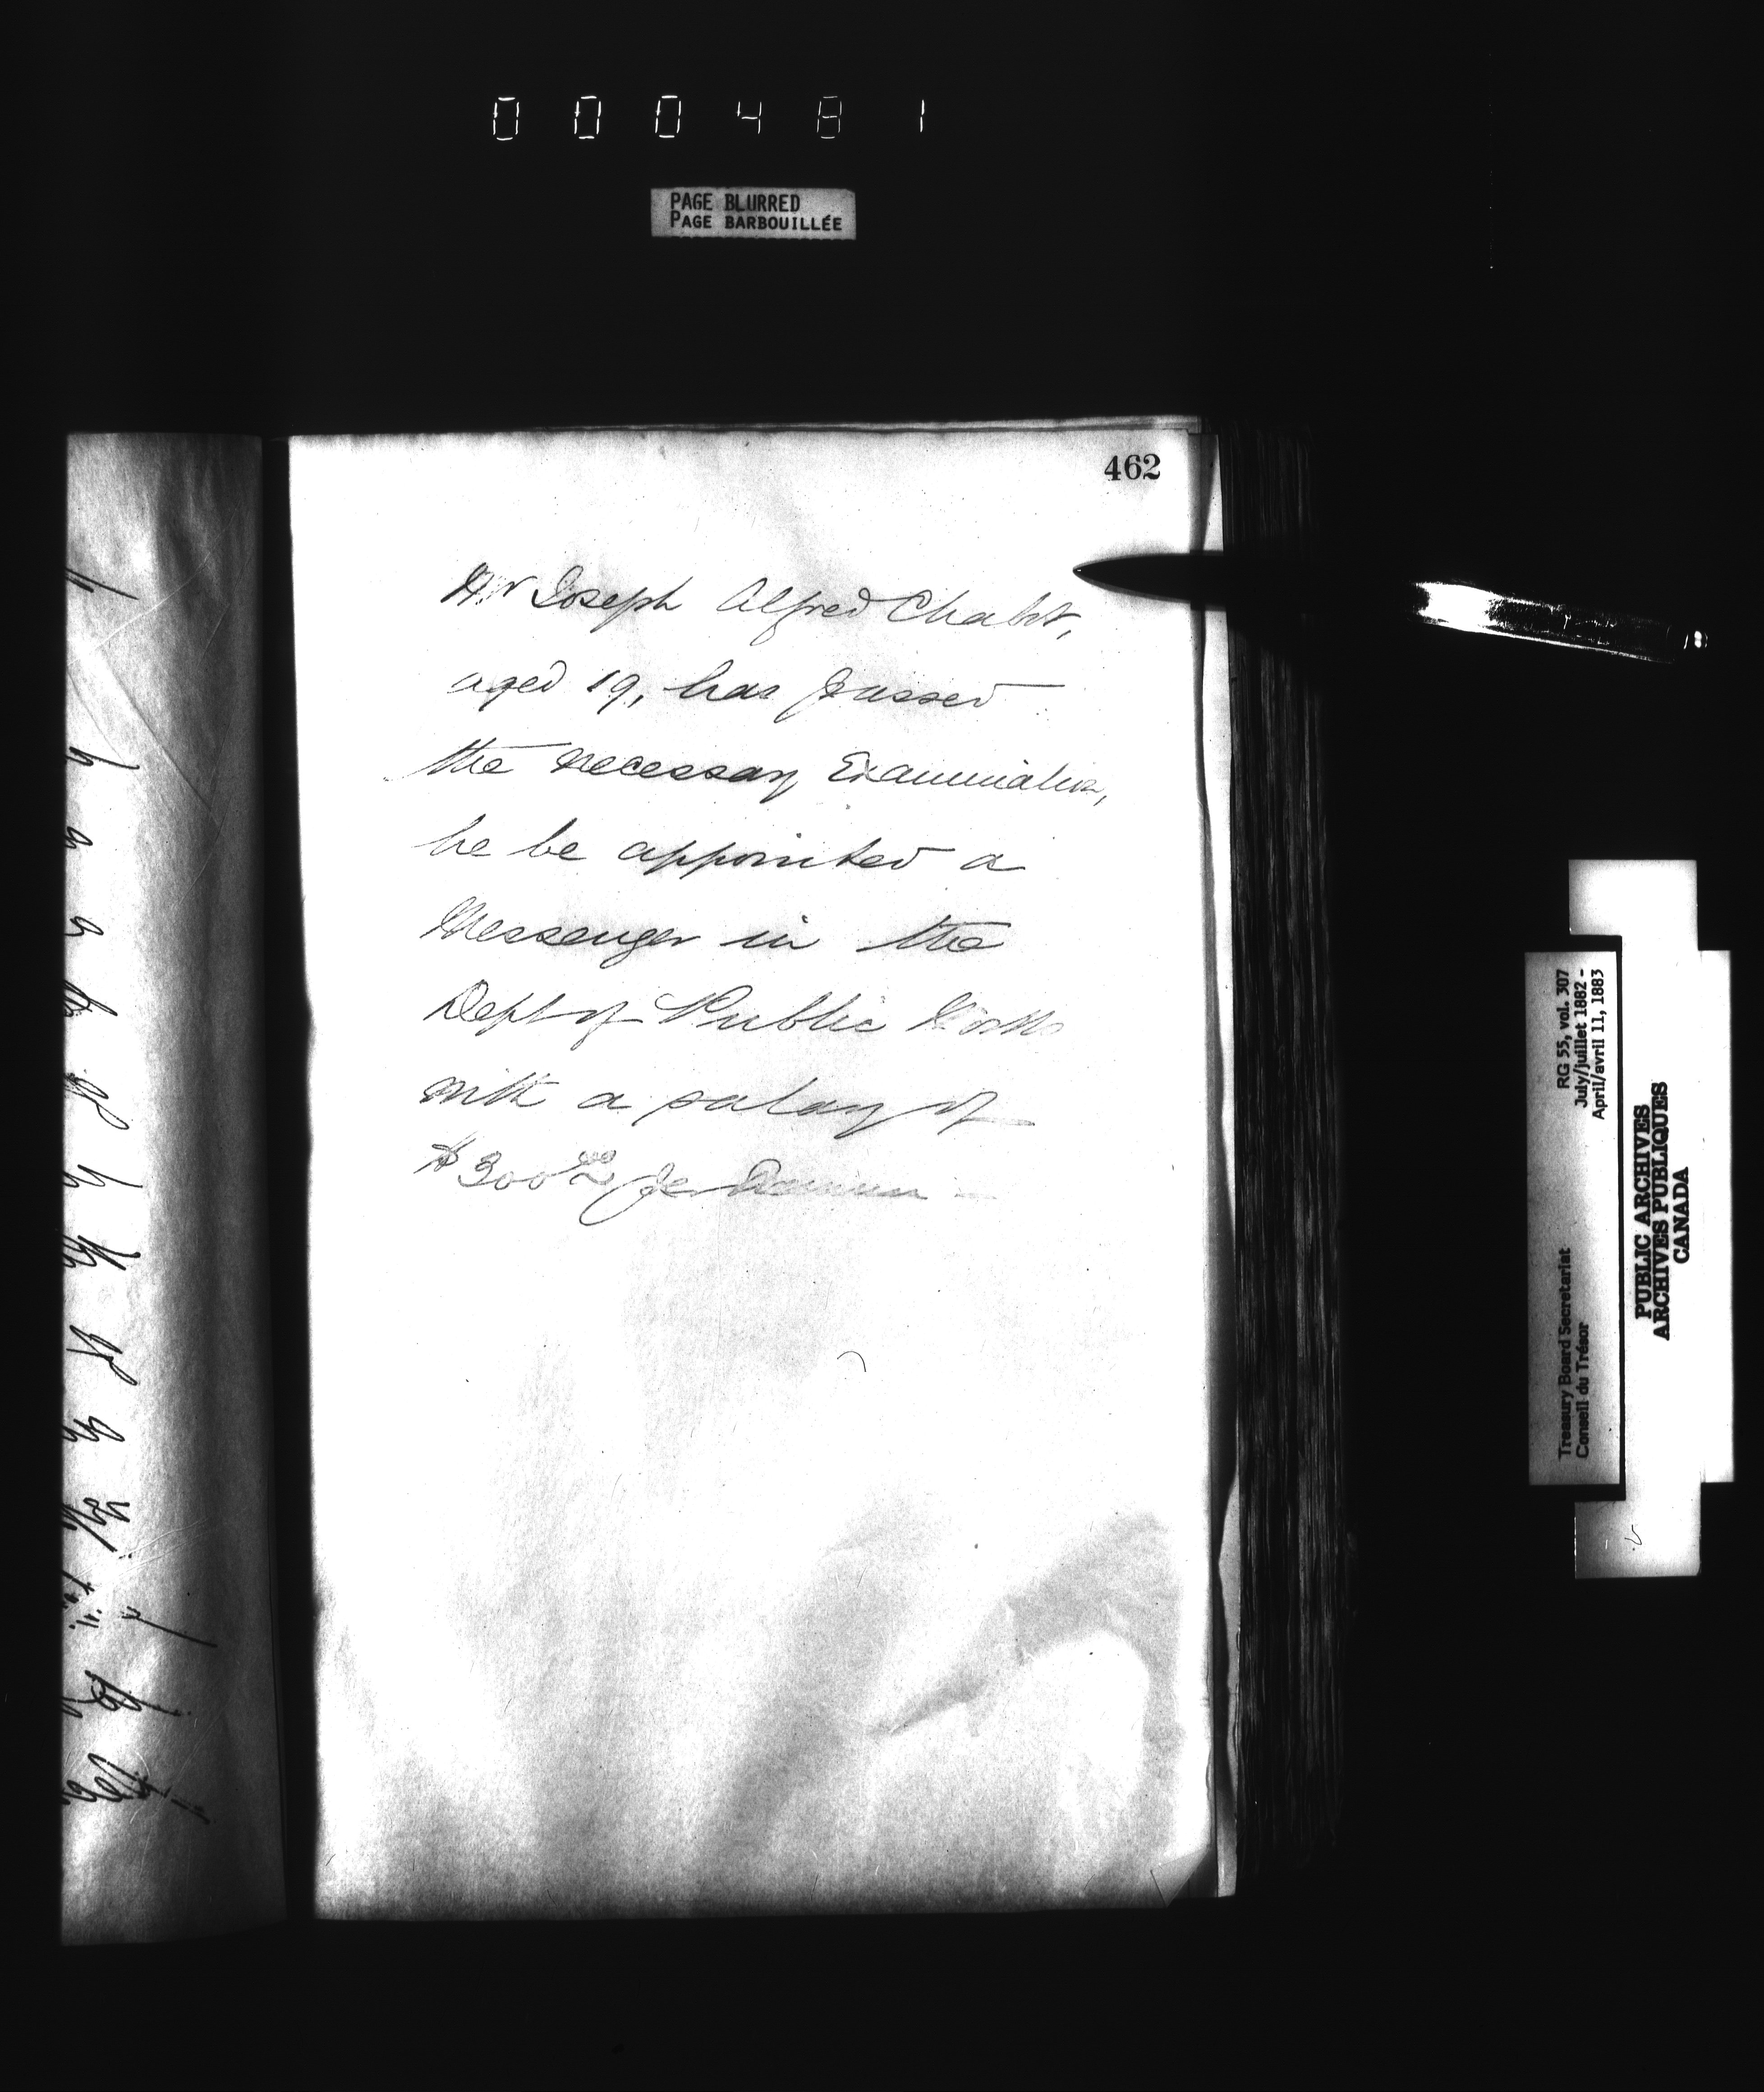 000481
PAGE BLURRED
PAGE BARBOUILLÉE
462
Mr Joseph Alfred Chabot,
aged 19, has passed
the necessary Examination,
he be appointed a
Messenger in the
Dept of Public Works
with a salary of
$300 00 per Annum
RG 55, vol. 307
July/juillet 1882 -
April/avril 11, 1883
Treasury Board Secretariat
Conseil du Trésor
PUBLIC ARCHIVES
ARCHIVES PUBLIQUES
CANADA